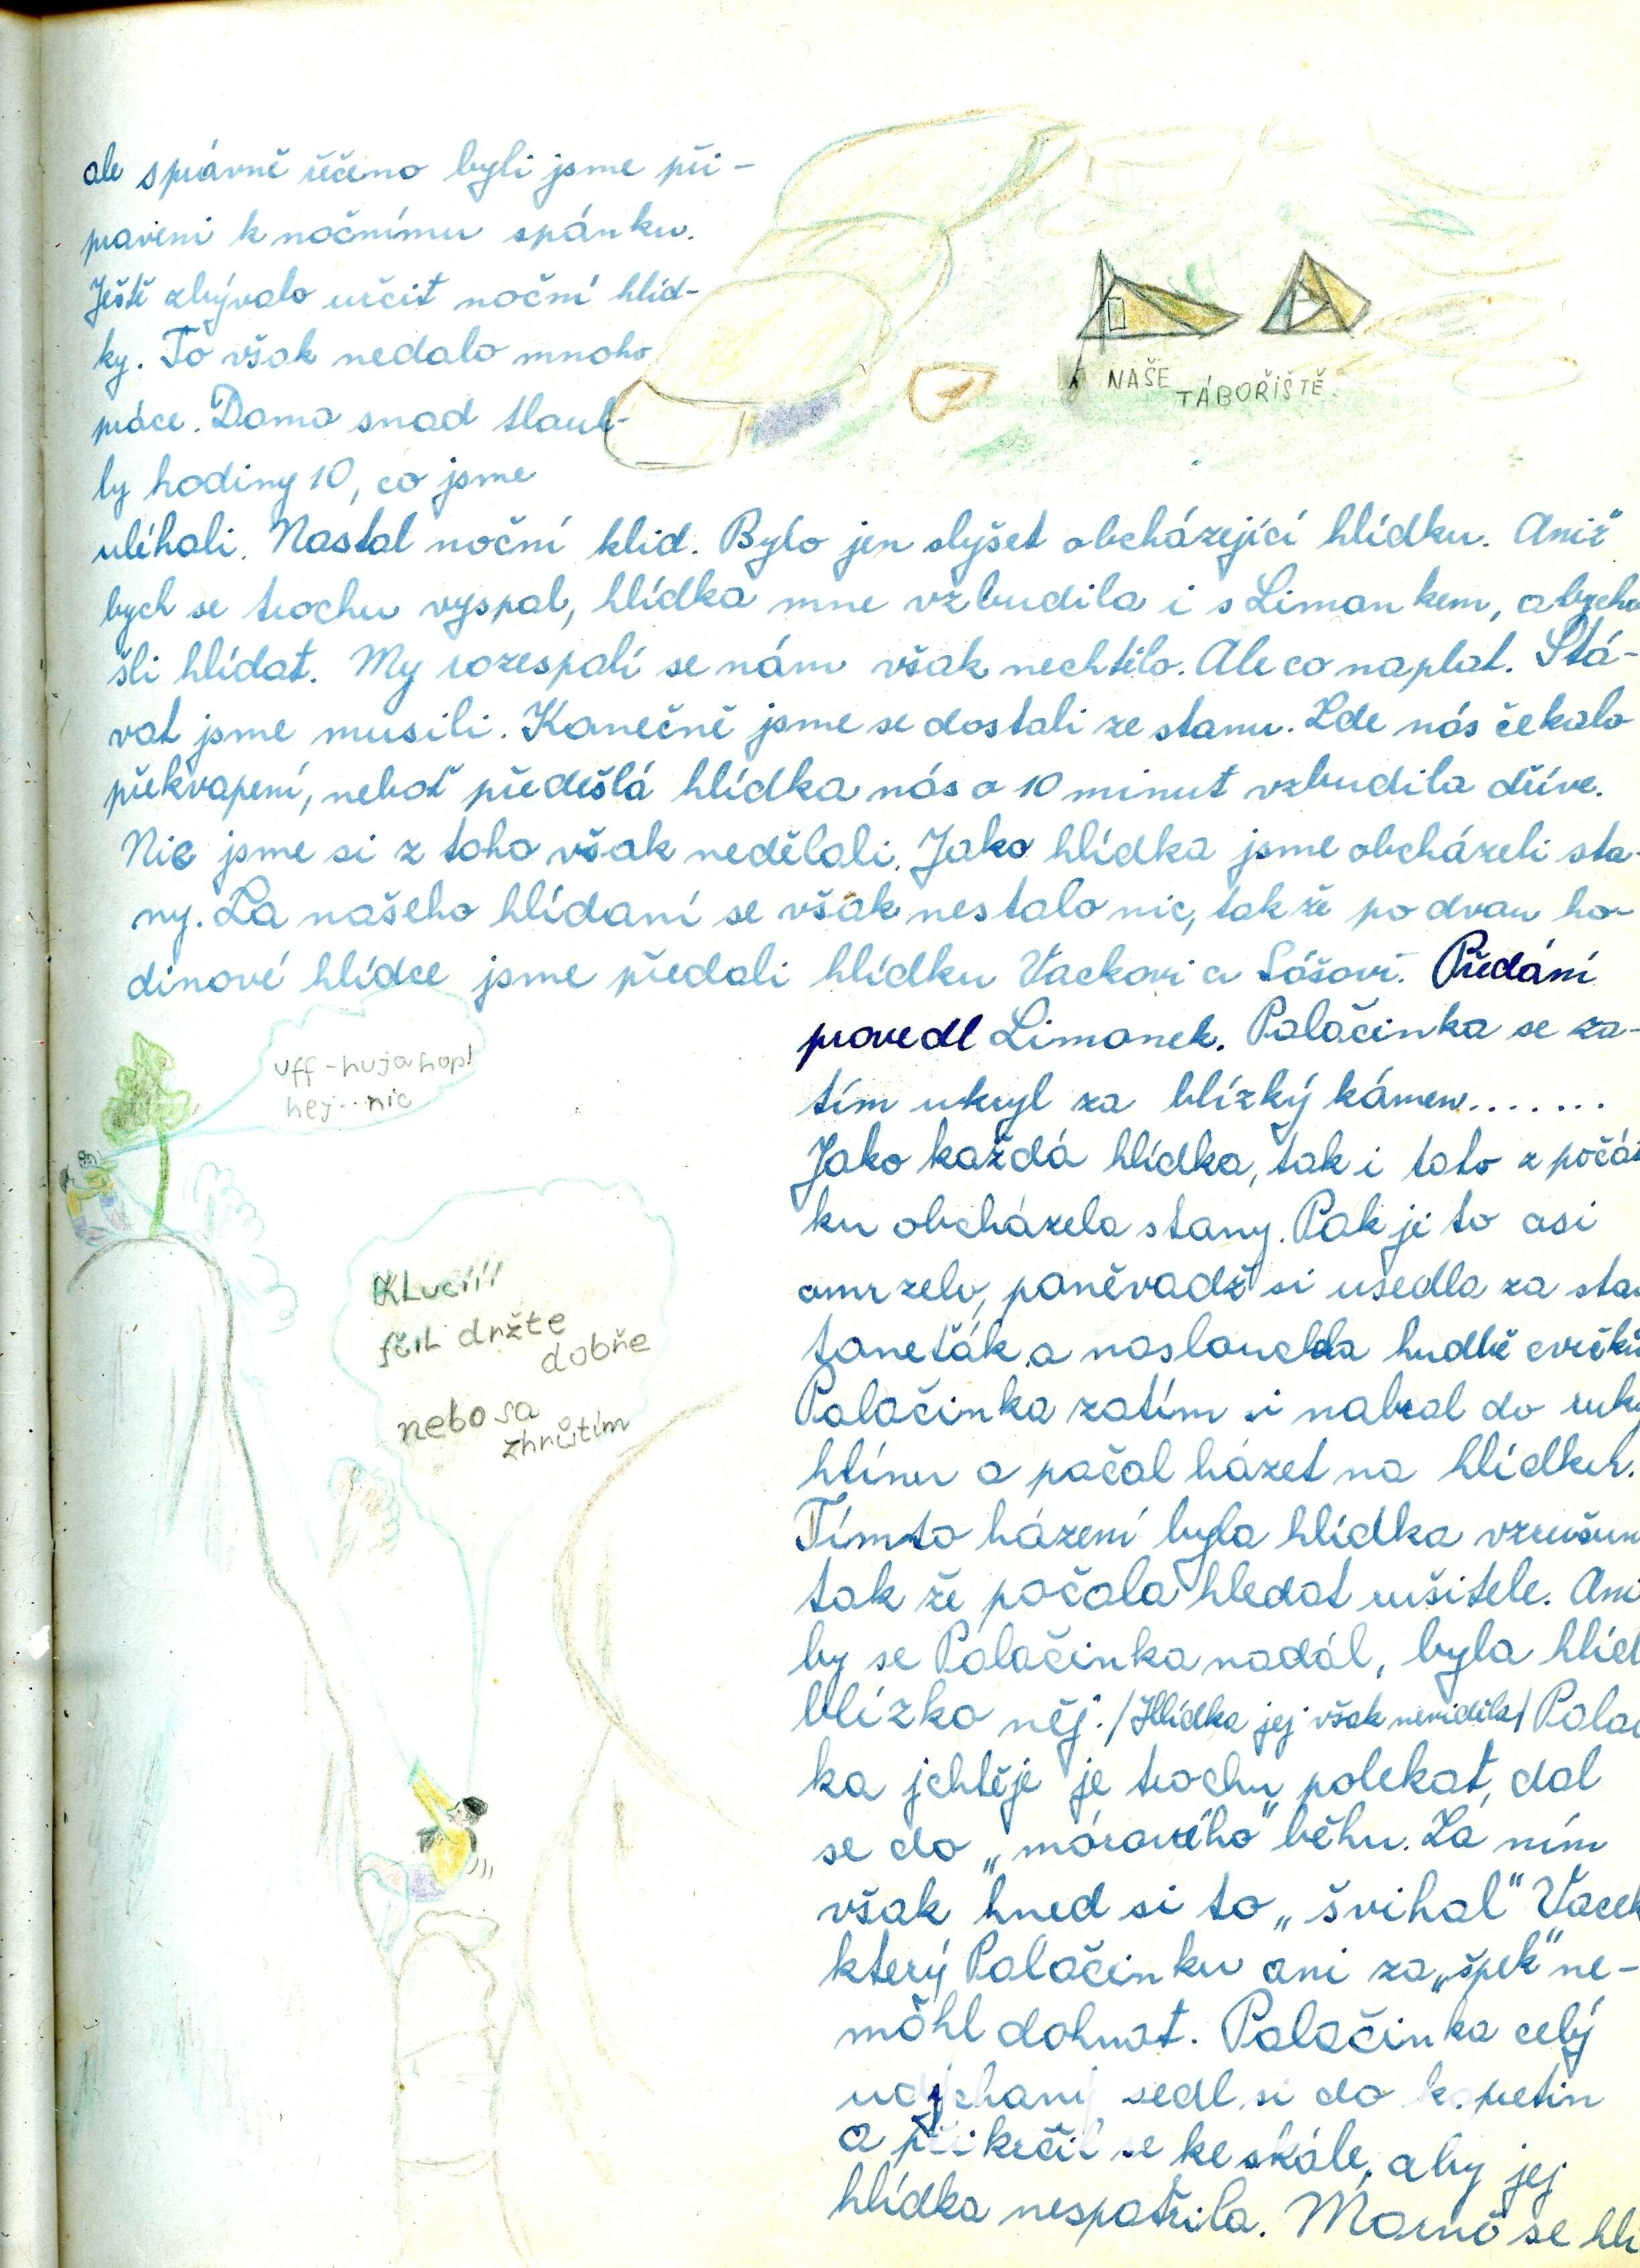 ale správně řečeno byli jsme při-
praveni k nočnímu spánku.
Ještě zbývalo určit noční hlíd-
ky. To však nedalo mnoho
práce. Doma snad tlouk-
ly hodiny 10, co jsme
uléhali. Nastal noční klid. Bylo jen slyšet obcházející hlídku. Aniž
bych se trochu vyspal, hlídka mne vzbudila i s Limonkem, abycho
šli hlídat. My rozespalí se nám však nechtělo. Ale co naplat. Stá-
vat jsme musili. Konečně jsme se dostali ze stanu. Zde nás čekalo
překvapení, neboť předešlá hlídka nás o 10 minut vzbudila dříve.
Nic jsme si z toho však nedělali. Jako hlídka jsme obcházeli sta-
ny. Za našeho hlídaní se však nestalo nic, takže po dvou ho-
dinové hlídce jsme předali hlídku Vackovi a Sóšovi. Předání
provedl Limonek. Palačinka se za-
tím ukryl za blízký kámen.......
Jako každá hlídka, tak i tato z počát
ku obcházela stany. Pak je to asi
omrzelo, poněvadž si usedla za stan
a naslouchla hudbě cvrčků
Palačinka zatím si nabral do ruky
hlínu a počal házet na hlídku.
Tímto házení byla hlídka vzrušun
tak že počala hledat rušitele. Ani
by se Palačinka nadál, byla hlíd
blízko něj. /Hlídka jej však neviděla/ Palač
ka jchtěje je trochu polekat, dal
se do „móravího" běhu. Za ním
však hned si to „švihal" Vacek
který Palačinku ani za „špek" ne-
môhl dohnat. Palačinka celý
udýchaný sedl si do kopretin
a přikrčil se ke skále, aby jej
hlídka nespatřila. Marně se hlí
NAŠE
TÁBOŘIŠTĚ.
uff-hujahop!
hej..nic
KLucííí
držte
dobře
nebo sa
zhrůtím